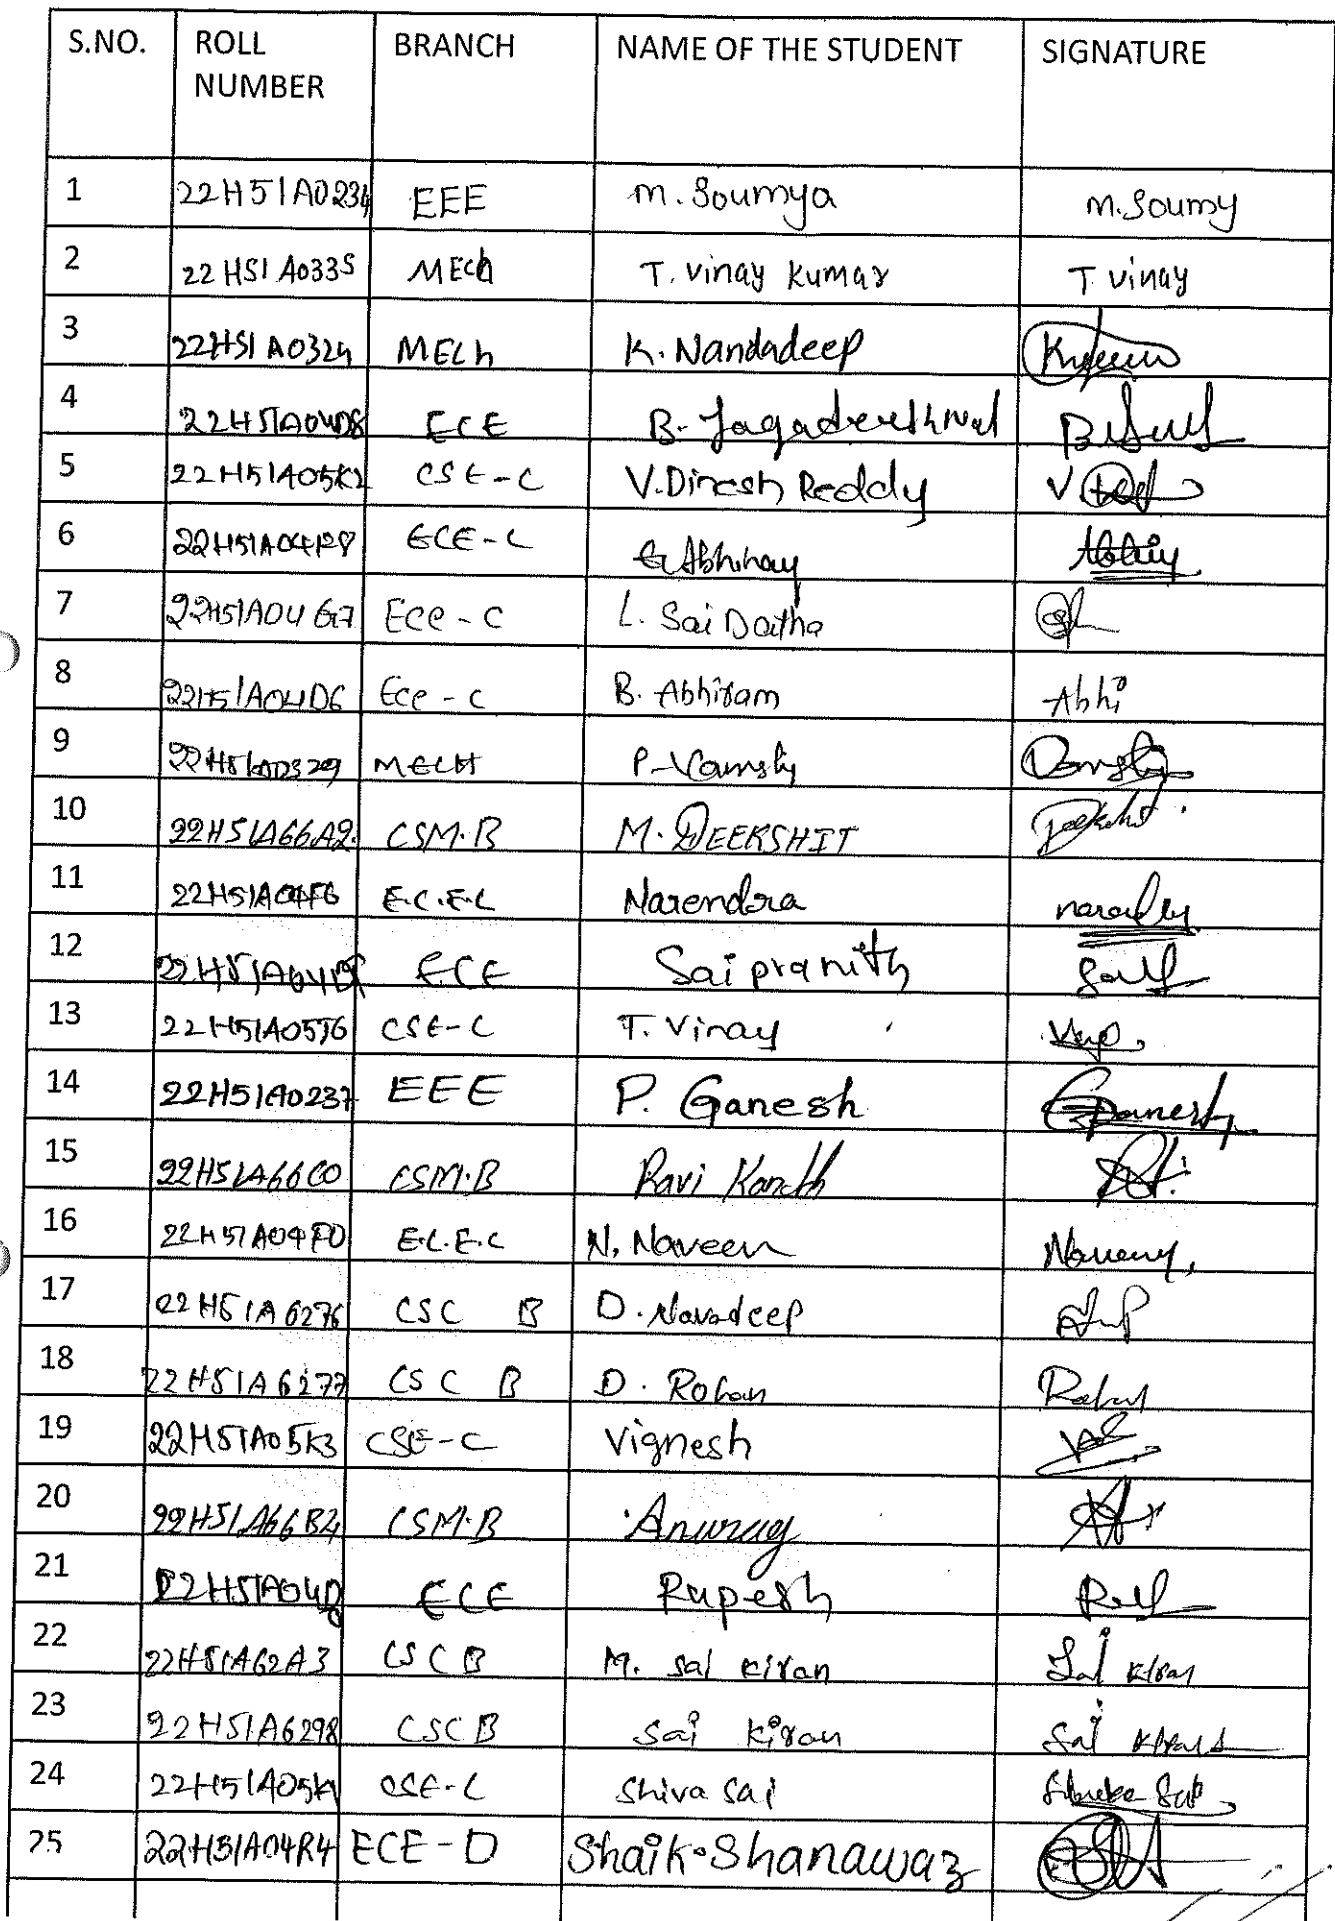 S.NO. ROLL NUMBER BRANCH NAME OF THE STUDENT SIGNATURE
1 22H51A0234 EEE M. Soumya M. Soumy
2 22H51A0335 MECh T. Vinay Kumar T Vinay
3 22H51A0324 MECh K. Nandadeep
4 ECE B.
5 22H51A05K2 CSE-C V. Dinesh Reddy V
6 ECE-C G. Abhinay
7 22H51A04G7 Ece-C L. Sai Datha
8 22H51A04D6 Ece-C B. Abhiram Abhi
9 22H51A0329 MECH P. Vamshy Vamshy
10 22H51A66A2 CSM-B M. DEEKSHIT
11 22H51A04F6 E.C.E.C Narendra
12 ECE Sai pranith
13 22H51A05J6 CSE-C T. Vinay
14 22H51A0237 EEE P. Ganesh Ganesh
15 22H51A66C0 CSM-B Ravi Kanth
16 22H51A04F0 E.C.E.C N. Naveen
17 22H51A6276 CSC B D. Navadeep
18 22H51A6277 CSC B D. Rohan
19 22H51A05K3 CSE-C Vignesh
20 22H51A66B4 CSM-B Anurag
21 ECE Rupesh
22 22H51A62A3 CSC B M. Sai Kiran Sai Kiran
23 22H51A6298 CSC B Sai Kiran Sai
24 CSE-C Shiva Sai
25 22H51A04R4 ECE-D Shaik. Shanawaz